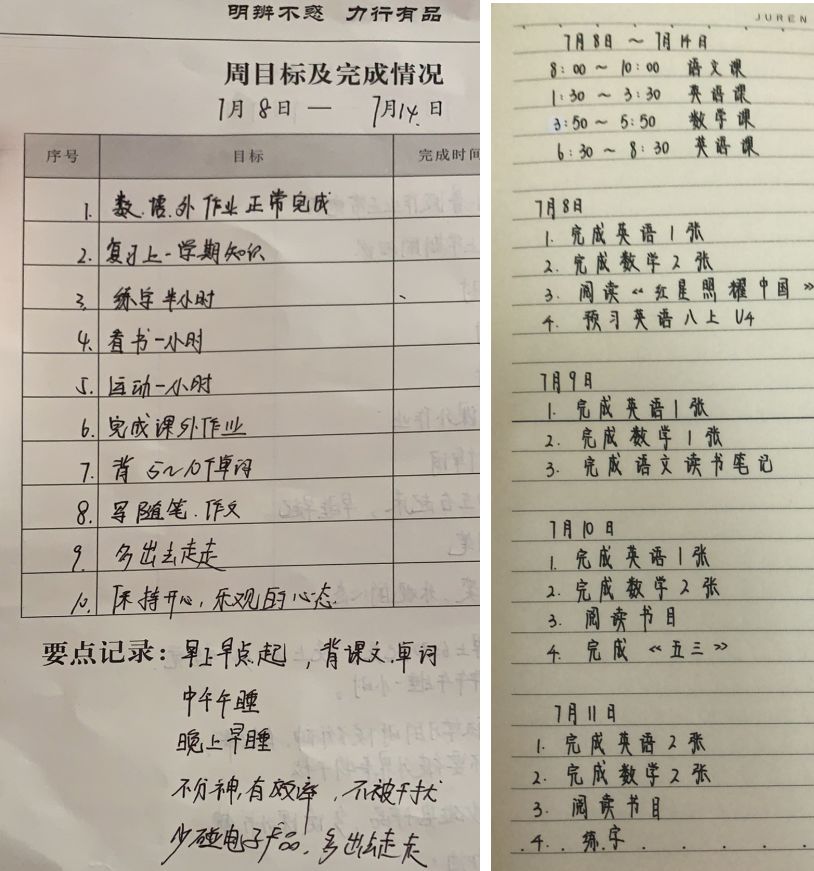 明辨不惑 力行有品
周目标及完成情况
7月8日 — 7月14日
序号 目标 完成时间
1. 数.语.外作业正常完成
2. 复习上一学期知识
3. 练字半小时
4. 看书一小时
5. 运动一小时
6. 完成课外作业
7. 背5~10个单词
8. 写随笔.作文
9. 多出去走走
10. 保持开心,乐观的心态.
要点记录:早上早点起,背课文.单词
中午午睡
晚上早睡
不分神,有效率,不被干扰
少碰电子产品.多出去走走
JUREN
7月8日 ~ 7月14日
8:00 ~ 10:00 语文课
1:30 ~ 3:30 英语课
3:50 ~ 5:50 数学课
6:30 ~ 8:30 英语课
7月8日
1. 完成英语1张
2. 完成数学2张
3. 阅读《红星照耀中国》
4. 预习英语八上U4
7月9日
1. 完成英语1张
2. 完成数学1张
3. 完成语文读书笔记
7月10日
1. 完成英语1张
2. 完成数学2张
3. 阅读书目
4. 完成《五三》
7月11日
1. 完成英语2张
2. 完成数学2张
3. 阅读书目
4. 练字